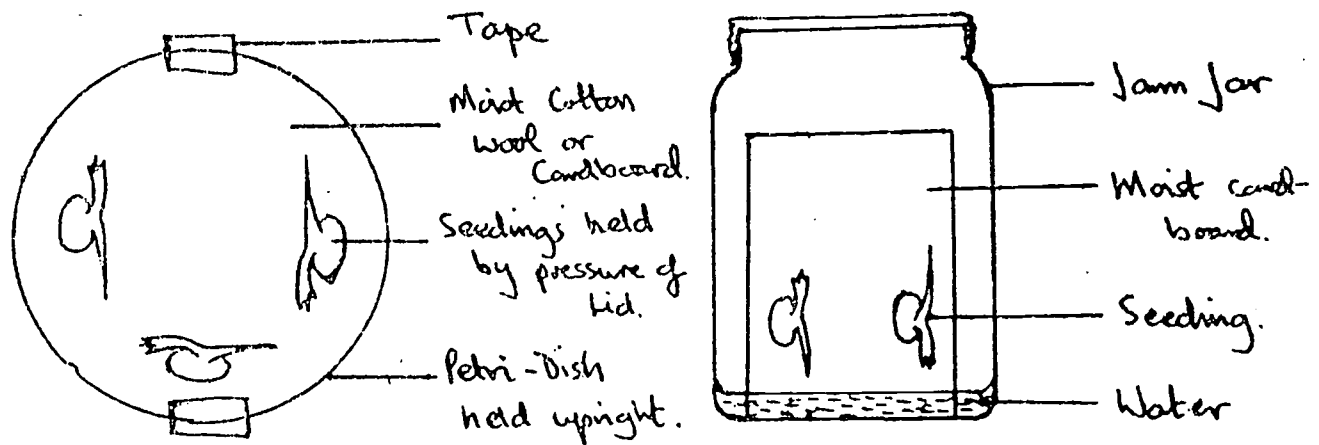 Tape
Moist Cotton
wool or
Cardboard.
Seedings held
by pressure of
lid.
Petri-Dish
held upright.
Jam Jar
Moist card-
board.
Seeding.
Water